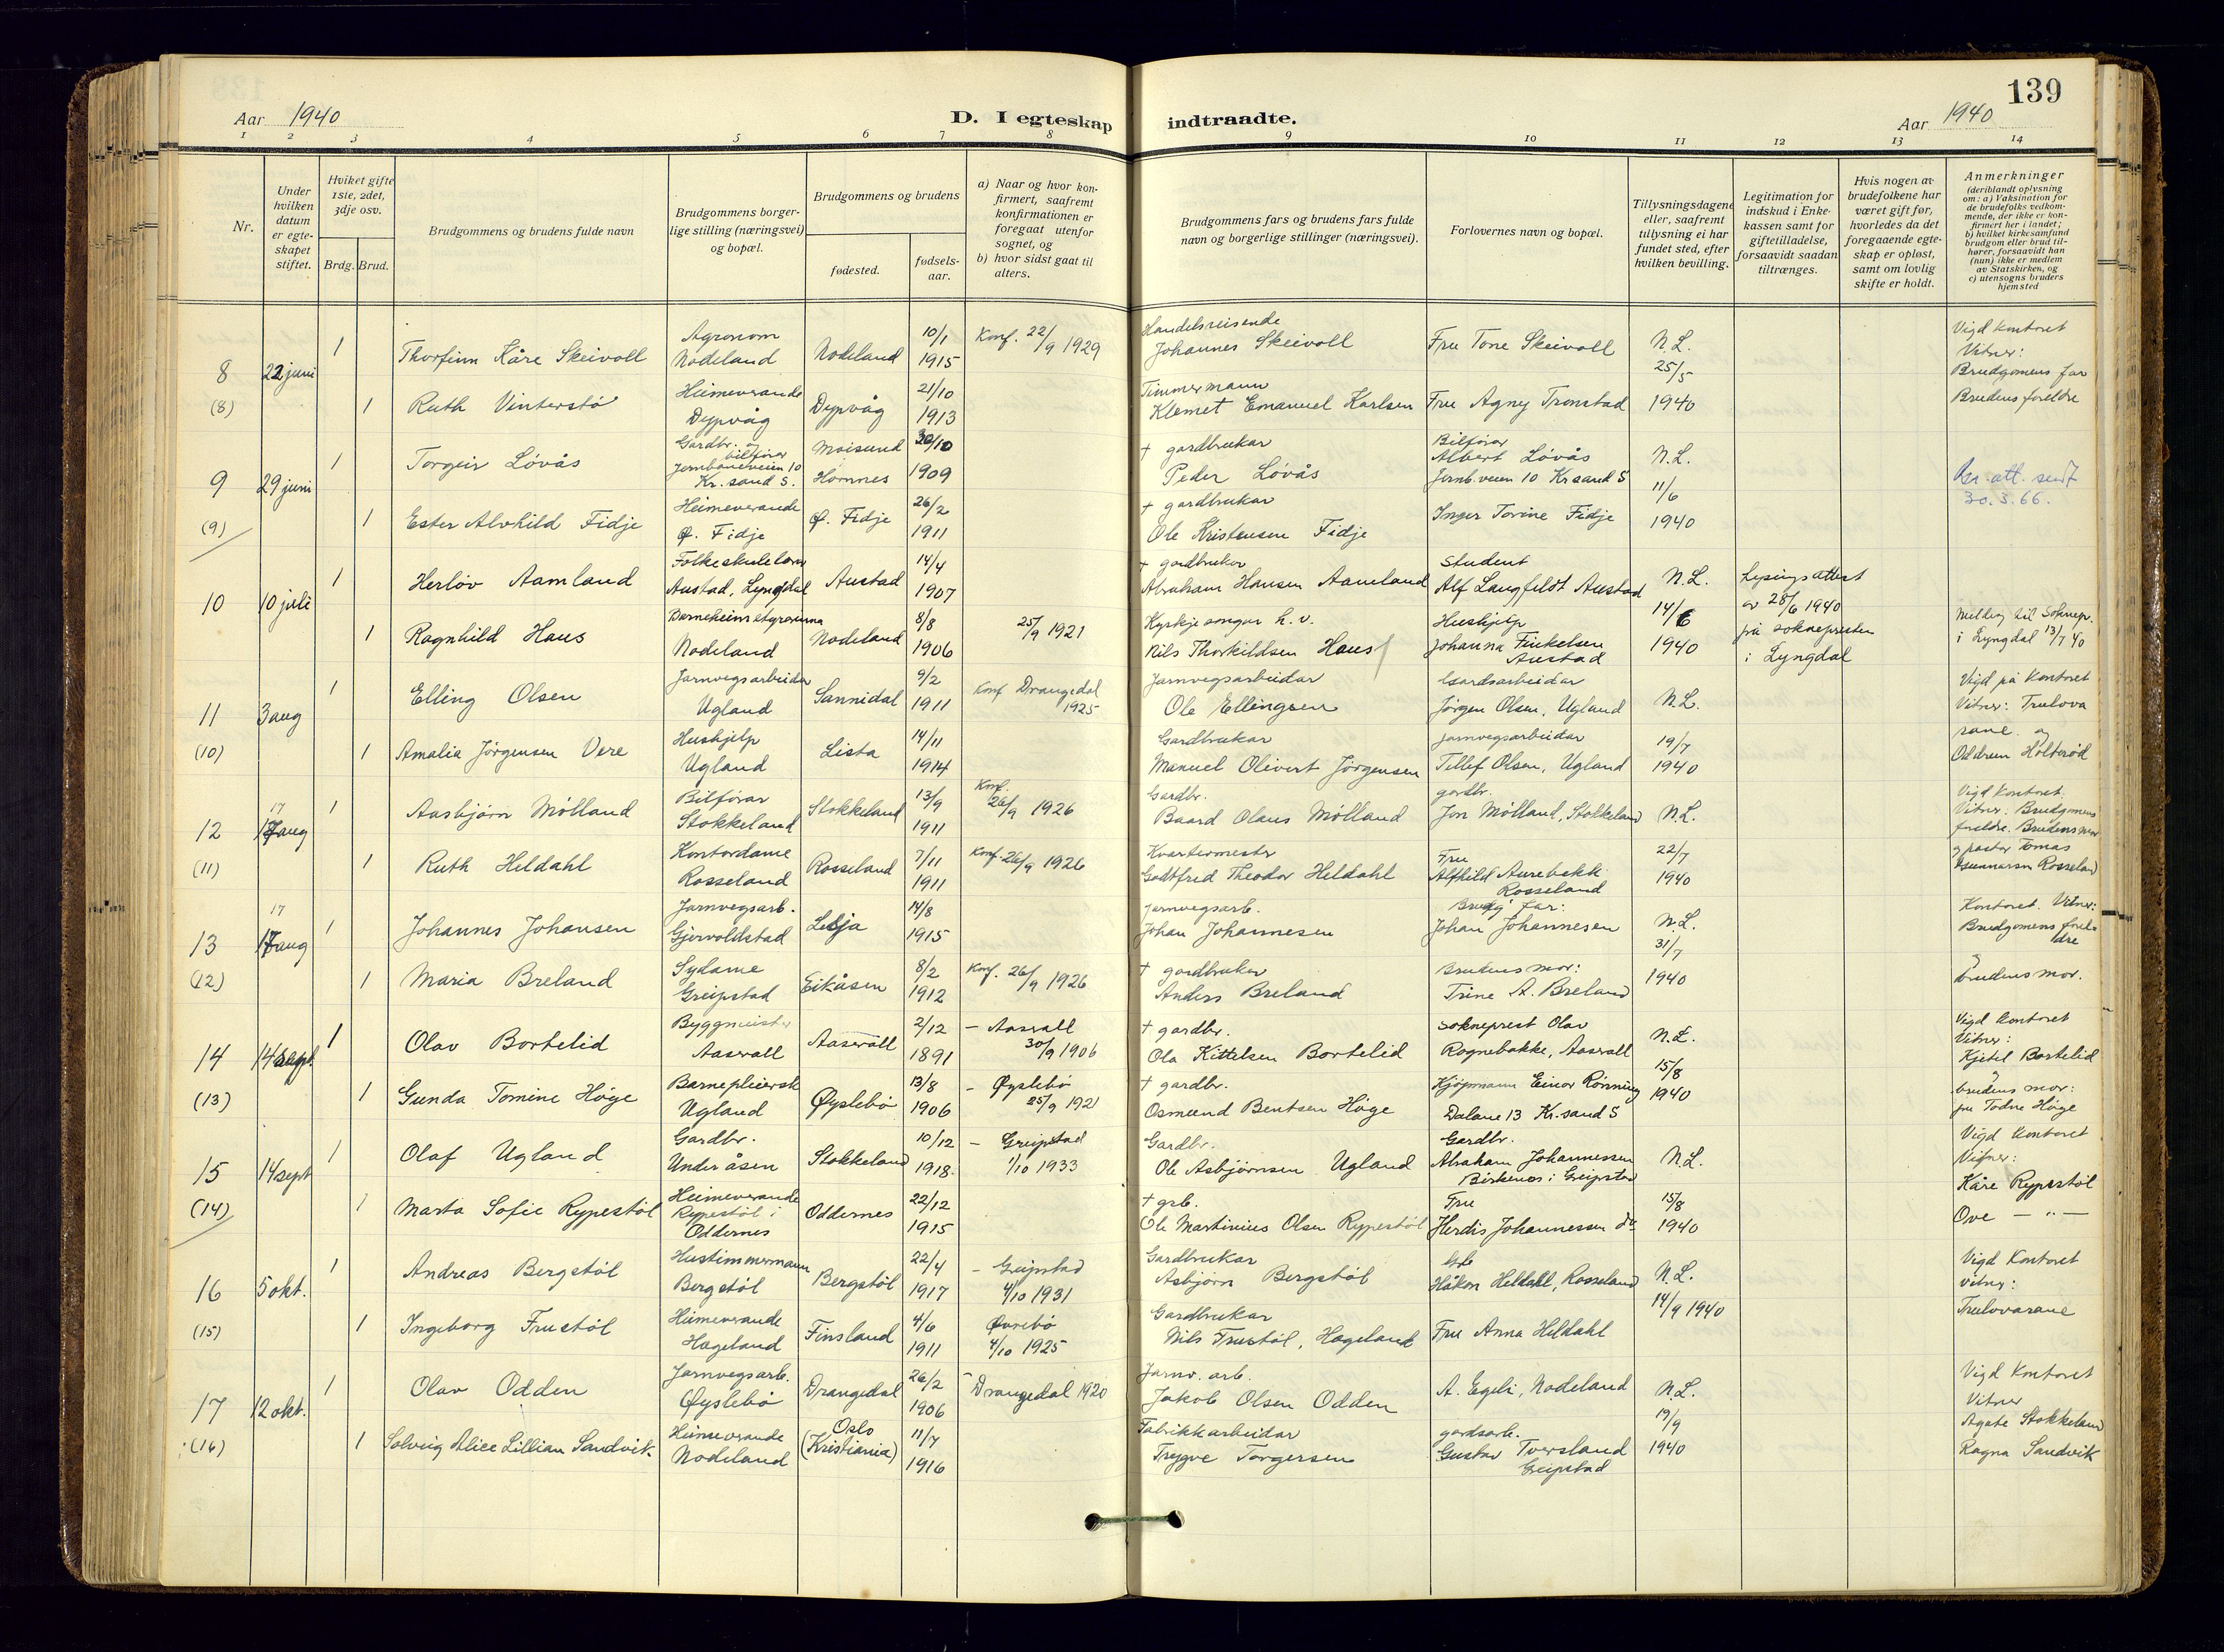 139
Aar 1940
D. I egteskap indtraadte.
Aar 1940
1 2 3 4 5 6 7 8 9 10 11 12 13 14
Nr.
Under hvilken datum er egteskapet stiftet.
Hviket gifte 1ste, 2det, 3dje osv.
Brdg. Brud.
Brudgommens og brudens fulde navn
Brudgommens borgerlige stilling (næringsvei) og bopæl.
Brudgommens og brudens
fødested.
fødselsaar.
a) Naar og hvor konfirmert, saafremt konfirmationen er foregaat utenfor sognet, og
b) hvor sidst gaat til alters.
Brudgommens fars og brudens fars fulde navn og borgerlige stillinger (næringsvei).
Forlovernes navn og bopæl.
Tillysningsdagene eller, saafremt tillysning ei har fundet sted, efter hvilken bevilling.
Legitimation for indskud i Enkekassen samt for giftetilladelse, forsaavidt saadan tiltrænges.
Hvis nogen av brudefolkene har været gift før, hvorledes da det foregaaende egteskap er opløst, samt om lovlig skifte er holdt.
Anmerkninger (deriblandt oplysning om: a) Vaksination for de brudefolks vedkommende, der ikke er konfirmert her i landet; b) hvilket kirkesamfund brudgom eller brud tilhører, forsaavidt han (hun) ikke er medlem av Statskirken, og c) utensogns bruders hjemsted
8 22 juni 1 Thorfinn Kåre Skeivoll Agronom Nodeland Nodeland 10/1 1915 Konf. 22/9 1929 Handelsreisende Johannes Skeivoll Fru Tone Skeivoll N.L. 25/5 1940 Vigd kontoret Vitner: Brudgomens far Brudens foreldre
(8) 1 Ruth Vinterstø Heimeverande Dypvåg Dypvåg 21/10 1913 Timmermann Klemet Emanuel Karlsen Fru Agny Tronstad
9 29 juni 1 Torgeir Løvås Gardbr. og bilførar Jernbaneveien 10 Kr.sand S. Moisund Hornnes 30/10 1909 + gardbrukar Peder Løvås Bilførar Albert Løvås Jernb.veien 10 Kr.sand S N.L. 11/6 1940 att. sendt 30.3.66.
(9) 1 Ester Alvhild Fidje Heimeverande Ø. Fidje Ø. Fidje 26/2 1911 + gardbrukar Ole Kristensen Fidje Inger Torine Fidje
10 10 juli 1 Herlov Aamland Folkeskulelærar Austad, Lyngdal Austad 14/4 1907 + gardbrukar Abraham Hansen Aamland Student Alf Langfeldt Austad N.L. 14/6 1940 Lysingsattest av 28/6 1940 frå soknepresten i Lyngdal
1 Ragnhild Haus Barneheimstyrarinna Nodeland Nodeland 8/8 1906 25/9 1921 Kyrkjesongar h. v. Nils Thorkildsen Haus Hushjelp Johanna Finkelsen Austad Melding til Soknep. i Lyngdal 13/7 40
11 3 aug 1 Elling Olsen Jarnvegsarbeidar Ugland Sannidal 9/2 1911 Konf Drangedal 1925 Jarnvegsarbeidar Ole Ellingsen Gardsarbeidar Jørgen Olsen, Ugland N.L. 19/7 1940 Vigd på kontoret Vitner: Trulovarane og Oddrun Holterød
(10) 1 Amalia Jørgensen Vere Hushjelp Ugland Lista 14/11 1914 Gardbrukar Manuel Olivert Jørgensen Jarnvegsarbeidar Tellef Olsen, Ugland
12 17 aug 1 Aasbjørn Mølland Bilførar Stokkeland Stokkeland 13/9 1911 Konf. 26/9 1926 Gardbr. Baard Olaus Mølland gardbr. Jon Mølland, Stokkeland N.L. 22/7 1940 Vigd kontoret. Vitner: Brudgomens foreldre. Brudens mor og pastor Tomas Gunnarson Rosseland
(11) 1 Ruth Heldahl Kontordame Rosseland Rosseland 7/11 1911 Konf 26/9 1926 Kvartermester Godtfred Theodor Heldahl Fru Alfhild Aurebekk Rosseland
13 17 aug 1 Johannes Johansen Jarnvegsarb. Gjervoldstad Lesja 14/8 1915 Jarnvegsarb. Johan Johannesen Brudg' far: Johan Johannesen N.L. 31/7 1940 Kontoret. Vitner: Brudgomens foreldre og brudens mor.
(12) 1 Maria Breland Sydame Greipstad Eikåsen 8/2 1912 Konf. 26/9 1926 + gardbruker Anders Breland Brudens mor: Trine A. Breland
14 14 sept. 1 Olav Bortelid Byggmeister Aaserall Aaserall 2/12 1891 – Aaserall 30/9 1906 + gardbr. Ola Kittelsen Bortelid Sokneprest Olav Rognebakke, Aaserall N.L. 15/8 1940 Vigd kontoret Vitner: Kjetel Bortelid og brudens mor: fru Todne Høge
(13) 1 Gunda Tomine Høge Barnepleiersk Ugland Øyslebø 13/8 1906 – Øyslebø 25/9 1921 + gardbr. Osmund Bentsen Høge Kjøpmann Einar Rønning Dalane 13 Kr.sand S
15 14 sept 1 Olaf Ugland Gardbr. Under åsen Stokkeland 10/12 1918. – Greipstad 1/10 1933 Gardbr. Ole Asbjørnsen Ugland Gardbr. Abraham Johannessen Birkenes i Greipstad N.L. 15/8 1940 Vigd kontoret Vitner: Kåre Rypestøl Ove — " —
(14) 1 Marta Sofie Rypestøl Heimeverande Rypestøl i Oddernes Oddernes 22/12 1915 + grb. Ole Martinius Olsen Rypestøl Fru Herdis Johannessen do
16 5 okt. 1 Andreas Bergstøl Hustimmermann Bergstøl Bergstøl 22/4 1917 – Greipstad 4/10 1931 Gardbrukar Asbjørn Bergstøl Håkon Heldahl, Rosseland N.L. 14/9 1940 Vigd kontoret Vitner: Trulovarane
(15) 1 Ingeborg Frustøl Heimeverande Hægeland Finsland 4/6 1911 Øvrebø 4/10 1925 Gardbrukar Nils Frustøl, Hægeland Fru Anna Heldahl
17 12 okt. 1 Olav Odden Jarnvegsarb. Øyslebø Drangedal 26/2 1906 – Drangedal 1920 Jarnv. arb. Jakob Olsen Odden A. Egeli, Nodeland N.L. 19/9 1940 Vigd kontoret Vitner Agate Stokkeland Ragna Sandvik
(16) 1 Solveig Alice Lillian Sandvik Heimeverande Nodeland Oslo (Kristiania) 11/7 1916 Fabrikkarbeidar Trygve Torgersen gardsarb. Gustav Tversland Greipstad